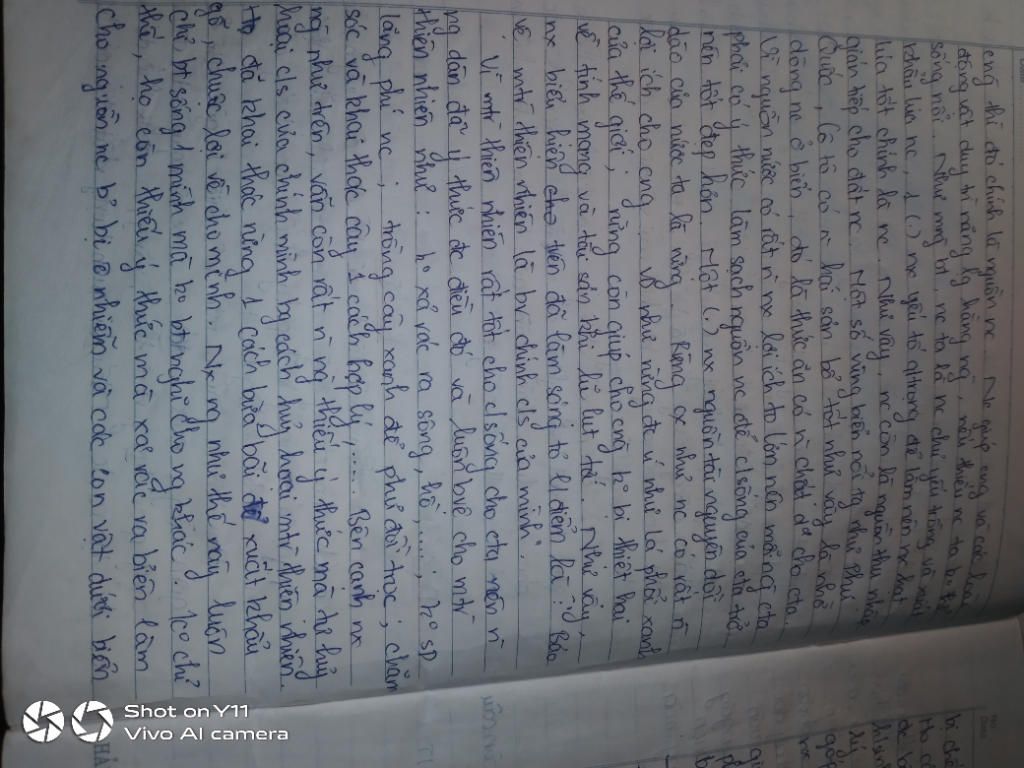 cng thì đó chính là nguồn nc. Nc giúp cng và các loài
động vật duy trì năng lg hằng ng, nếu thiếu nc ta ko thể
sống nổi. Như mng bt, nc ta là nc chủ yếu trồng và xuất
khẩu lúa nc, 1 (.) nx yếu tố qtrọng để làm nên nx hạt
lúa tốt chính là nc. Như vậy, nc còn là nguồn thu nhập
gián tiếp cho đất nc. Một số vùng biển nổi tg như Phú
Quốc, Cô Tô có n hải sản bổ tốt như vậy là nhờ
dòng nc ở biển, đó là thức ăn có n chất d² cho cta.
Vì nguồn nước có rất n nx lợi ích to lớn nên mỗi ng cta
phải có ý thức làm sạch nguồn nc để c/sống của cta trở
nên tốt đẹp hơn. Một (.) nx nguồn tài nguyên dồi
dào của nước ta là rừng. Rừng cx như nc có rất n
lợi ích cho cng. Vd như rừng đc ví như lá phổi xanh
của thế giới; rừng còn giúp cho cng ko bị thiệt hại
về tính mạng và tài sản khi lũ lụt tới. Như vậy,
nx biểu hiện cho trên đã làm sáng tỏ l/điểm là: "Bảo
vệ mtr thiên nhiên là bv chính c/s của mình".
Vì mtr thiên nhiên rất tốt cho c/sống cho cta nên n
ng dân đã ý thức đc điều đó và luôn bvệ cho mtr
thiên nhiên như: ko xả rác ra sông, hồ, ...; ko sd
lãng phí nc; trồng cây xanh để phủ đồi trọc; chăm
sóc và khai thác cây 1 cách hợp lý; ... Bên cạnh nx
ng như trên, vẫn còn rất n ng thiếu ý thức mà tự huỷ
hoại c/s của chính mình bg cách huỷ hoại mtr thiên nhiên.
Họ đã khai thác rừng 1 cách bừa bãi để xuất khẩu
gỗ, chuộc lợi về cho mình. Nx ng như thế này luôn
chỉ bt sống 1 mình mà ko bt nghĩ cho ng khác. Ko chỉ
thế, họ còn thiếu ý thức mà xả rác ra biển làm
cho nguồn nc bị ô nhiễm và các con vật dưới biển
Shot on Y11
Vivo AI camera